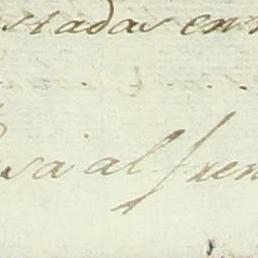 stadas en
sa al fren